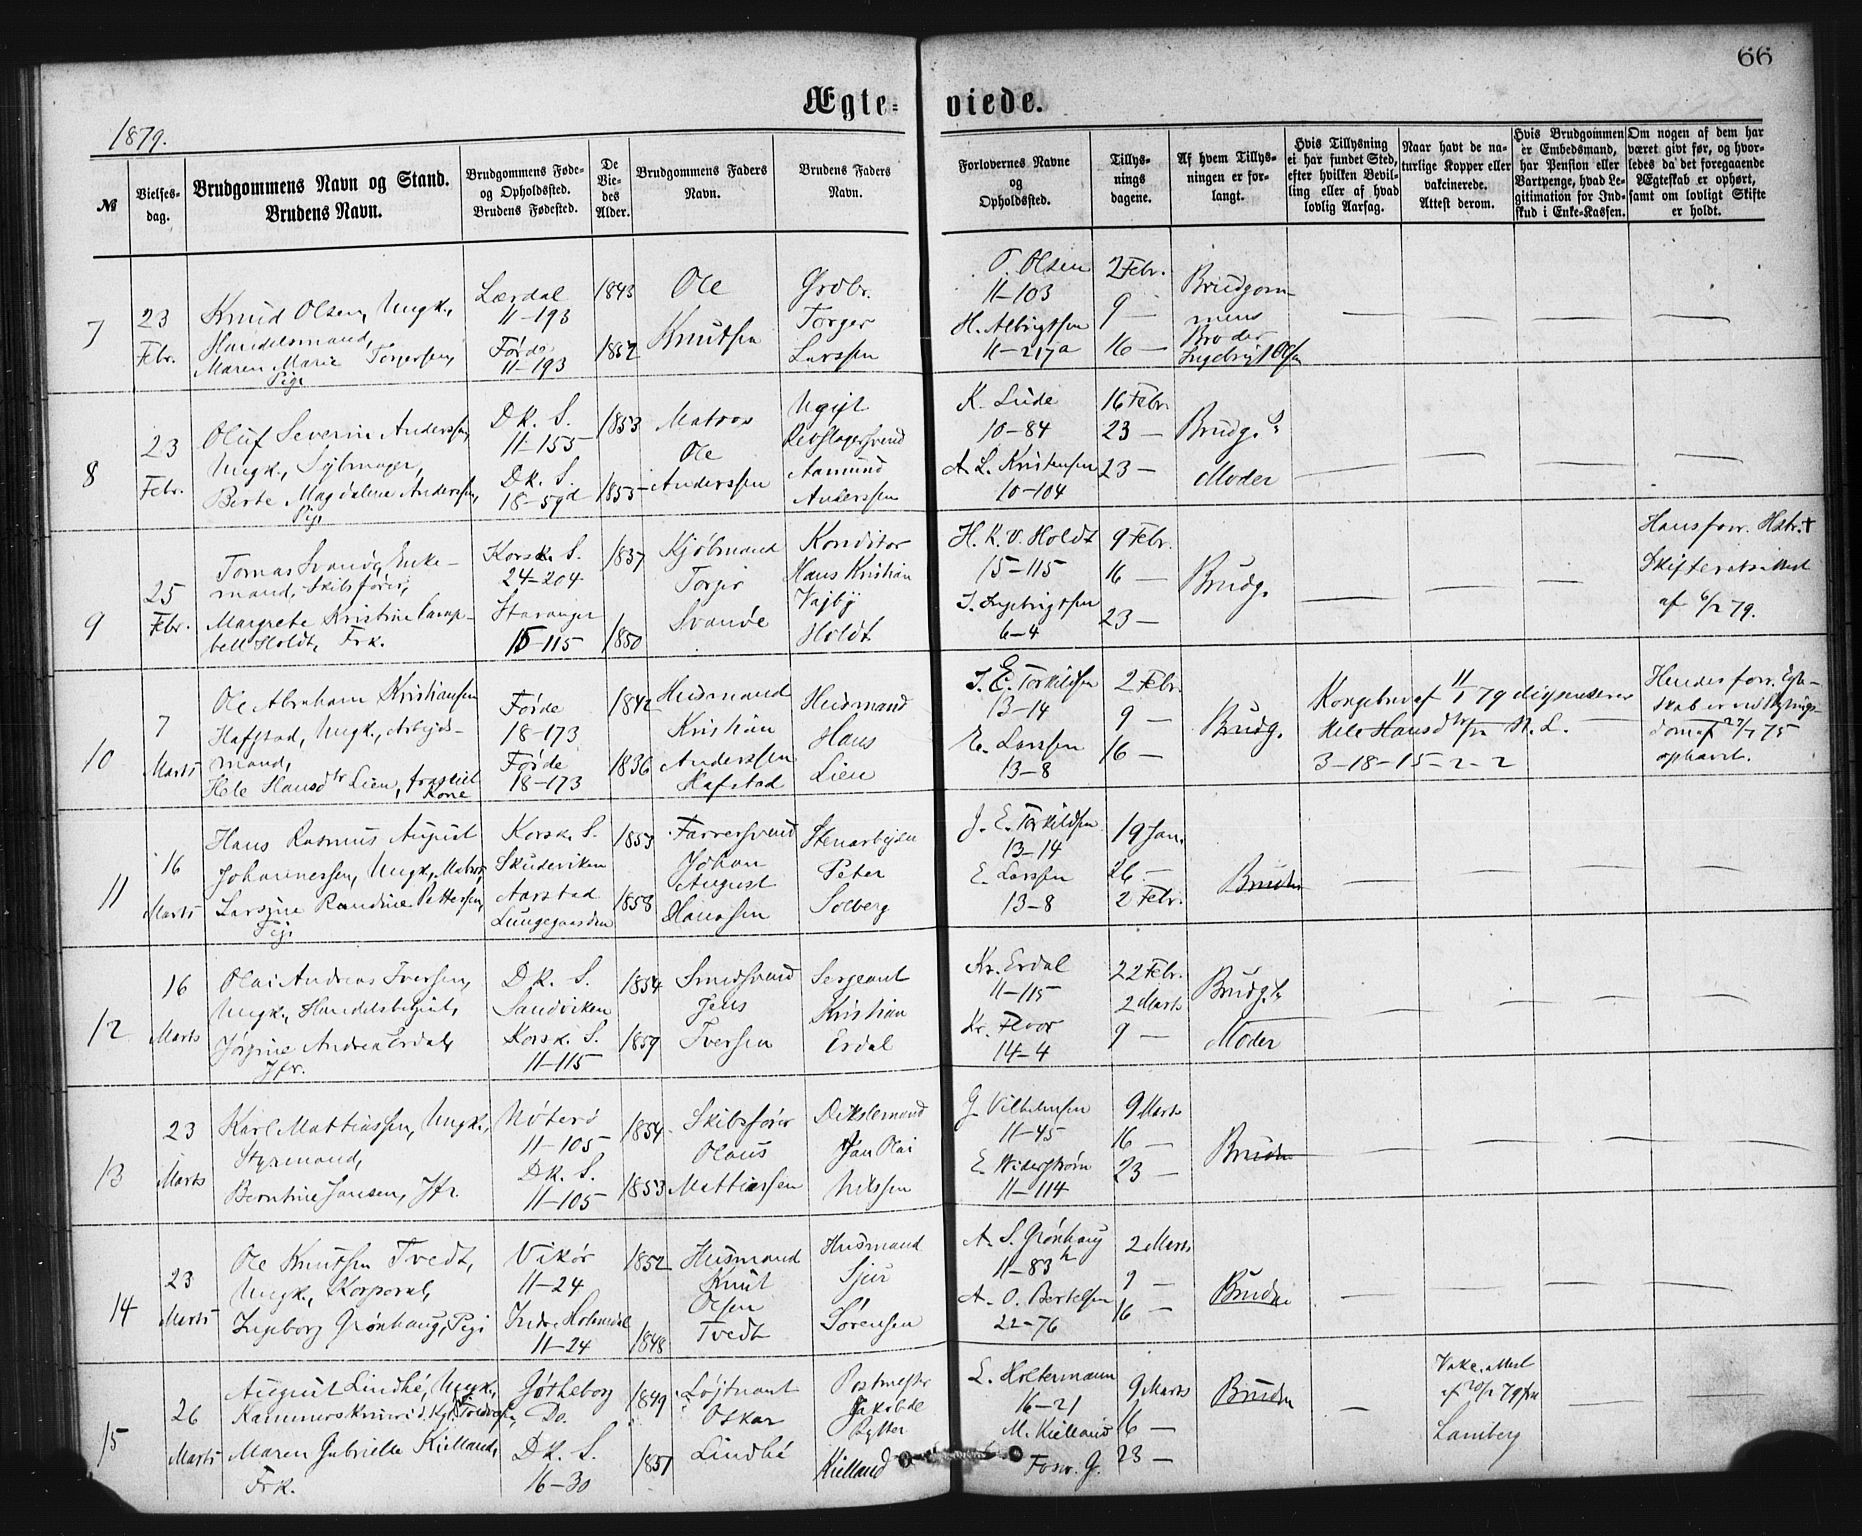 66
Ægte- viede.
1879.
№
Vielses-
dag.
Brudgommens Navn og Stand.
Brudens Navn.
Brudgommens Føde-
og Opholdssted.
Brudens Fødested.
De
Vie-
des
Alder.
Brudgommens Faders
Navn.
Brudens Faders
Navn.
Forlovernes Navne
og
Opholdssted.
Tillys-
nings
dagene.
Af hvem Tillys-
ningen er for-
langt.
Hvis Tillysning
ei har fundet Sted,
efter hvilken Bevil-
ling eller af hvad
lovlig Aarsag.
Naar havt de na-
turlige Kopper eller
vakcinerede.
Attest derom.
Hvis Brudgommen
er Embedsmand,
har Pension eller
Vartpenge, hvad Le-
gitimation for Ind-
skud i Enke-Kassen.
Om nogen af dem har
været givt før, og hvor-
ledes da det foregaaende
Ægteskab er ophørt,
samt om lovligt Skifte
er holdt.
7
23
Febr.
Knud Olsen, Ungk.,
Handelsmand,
Maren Marie Torgersen,
Pige
Lærdal
11-193
Førde
11-193
1843
1852
Ole
Knutsen
Grdbr.
Torger
Larssen
O. Olsen
11-103
H. Albrigtsen
11-217a
2 Febr.
9 —
16 —
Brudgom-
mens
Broder
Ingebrigt Olsen
8
23
Febr.
Oluf Severin Anderssen,
Ungk.,
Berte Magdalene Anderssen,
Pige
Dk. S.
11-155
Dk. S.
18-59d
1853
1855
Matros
Ole
Anderssen
Ugift
Rebslagersvend
Aamund
Anderssen
K. Lude
10-84
A. L. Kristensen
10-104
16 Febr.
23 —
23 —
Brudg.s
Moder
9
25
Febr.
Tomas Svanøe, Enke-
mand, Skibsfører,
Margrete Kristine Camp-
bell Holdt, Frk.
Korsk. S.
24-204
Stavanger
15-115
1837
1850
Kjøbmand
Torger
Svanøe
Konditor
Hans Kristian
Vajby
Holdt
H. K. V. Holdt
15-115
I. Ingebrigtsen
6-4
9 Febr.
16 —
23 —
Brudg.
Hans forr. Hstr. †
Skifteretsattest
af 6/2 79.
10
7
Marts
Ole Abraham Kristiansen
Hafstad, Ungk., Arbejds-
mand,
Hele Hansdtr Lien, fraskilt
Kone
Førde
18-173
Førde
18-173
1842
1836
Husmand
Kristian
Anderssen
Hafstad
Husmand
Hans
Lien
J. E. Torkildsen
13-14
E. Larssen
13-8
2 Febr.
9 —
16 —
Brudg.
Kongebrev af 11/1 79 dispenserer
Hele Hansdtr fra N. L.
3-18-15-2-2
Hendes forr. Egte-
skab er ved Skylnings-
dom af 29/7 75
ophævet.
11
16
Marts
Hans Rasmus August
Johannessen, Ungk., Matros,
Larsine Randine Pettersen,
Pige
Korsk. S.
Skuteviken
Aarstad
Lungegaarden
1853
1858
Farversvend
Johan
August
Hanssen
Stenarbejder
Peter
Solberg
J. E. Torkildsen
13-14
E. Larssen
13-8
19 Jan.
26 —
2 Febr.
Bruden
12
16
Marts
Olai Andreas Iversen,
Ungk., Handelsbetjent,
Jørgine Andrea Erdal,
Jfr.
Dk. S.
Sandviken
Korsk. S.
11-115
1854
1859
Smedsvend
Jens
Iversen
Sergeant
Kristian
Erdal
Kr. Erdal
11-115
Kr. Floor
14-4
22 Febr.
2 Marts
9 —
Brudg.s
Moder
13
23
Marts
Karl Mattiassen, Ungk.,
Styrmand,
Berntine Jansen, Jfr.
Nøterø
11-105
Dk. S.
11-105
1854
1853
Skibsfører
Olaus
Mattiassen
Dekslemand
Jan Olai
Nilssen
G. Vilhelmsen
11-45
E. Widerstrøm
11-114
9 Marts
16 —
23 —
Bruden
14
23
Marts
Ole Knutsen Tvedt,
Ungk., Korporal,
Ingeborg Grønhaug, Pige
Vikør
11-24
Indre Holmedal
11-24
1852
1848
Husmand
Knut
Olsen
Tvedt
Husmand
Sjur
Sørensen
A. S. Grønhaug
11-83h
A. O. Bertelsen
22-76
2 Marts
9 —
16 —
Bruden
15
26
Marts
August Lindhé, Ungk.,
Maren Gabrielle Kielland,
Frk.
Gøtheborg
Do.
Dk. S.
16-30
1849
1851
Løjtnant
Oskar
Lindhé
Postmester
Jakob de
Rytter
Kielland
E. Holtermann
16-21
M. Kielland
Fosw. G.
9 Marts
16 —
23 —
Bruden
Vakc. attest
af 20/2 79 fra
Lamberg